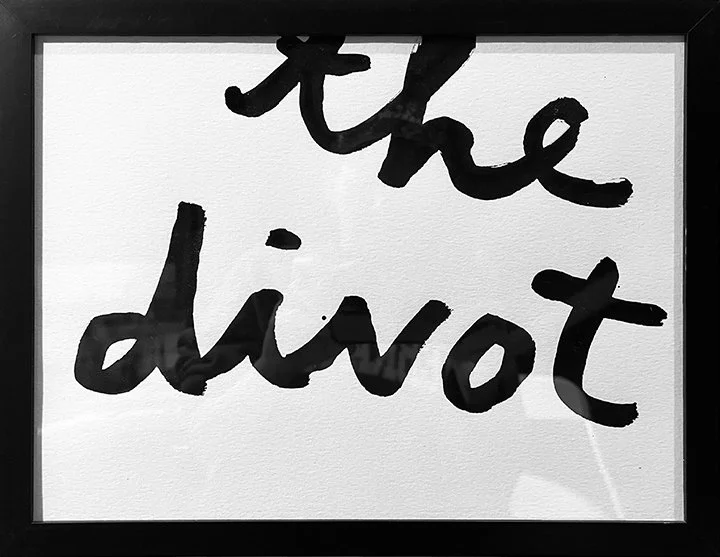 the
divot